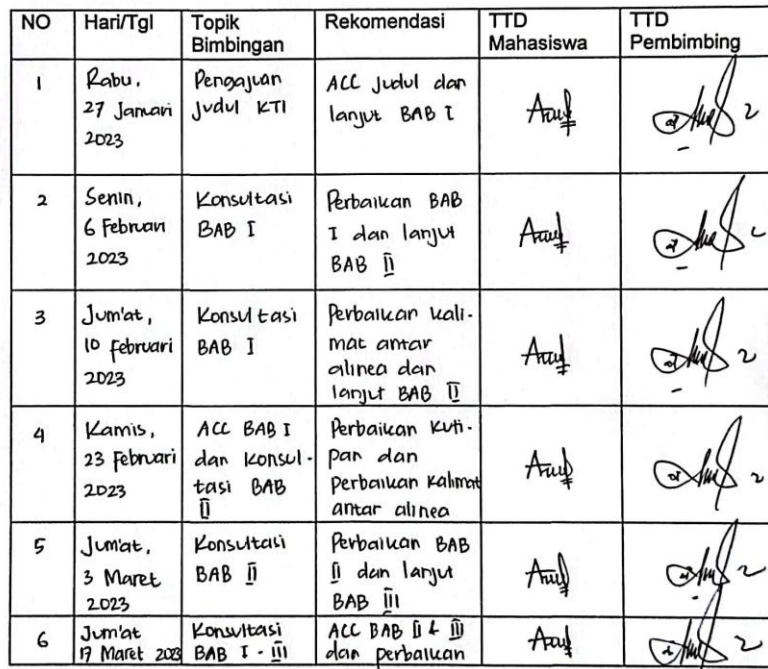 NO Hari/Tgl Topik Bimbingan Rekomendasi TTD Mahasiswa TTD Pembimbing
1 Rabu, 27 Januari 2023 Pengajuan Judul KTI ACC Judul dan lanjut BAB I
2 Senin, 6 Februari 2023 Konsultasi BAB I Perbaikan BAB I dan lanjut BAB II
3 Jum'at, 10 februari 2023 Konsultasi BAB I Perbaikan kali-mat antar alinea dan lanjut BAB II
4 Kamis, 23 Februari 2023 ACC BAB I dan Konsul-tasi BAB II Perbaikan Kuti-pan dan Perbaikan Kalimat antar alinea
5 Jum'at, 3 Maret 2023 Konsultasi BAB II Perbaikan BAB II dan lanjut BAB III
6 Jum'at 17 Maret 2023 Konsultasi BAB I - III ACC BAB II & III dan perbaikan